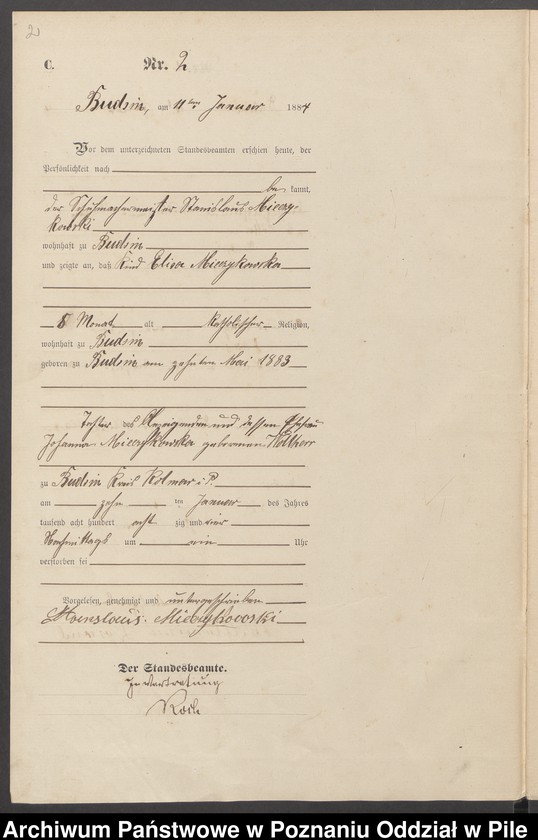 2
C. Nr. 2
Budsin, am 11ten Januar 1884
Vor dem unterzeichneten Standesbeamten erschien heute, der
Persönlichkeit nach
be kannt,
der Schuhmachermeister Stanislaus Mieczy-
kowski
wohnhaft zu Budsin
und zeigte an, daß Kind Elisa Mieczykowska
8 Monat alt katholischer Religion,
wohnhaft zu Budsin
geboren zu Budsin am zehnten Mai 1883
Tochter des Anzeigenden und dessen Ehefrau
Johanna Mieczykowska geborenen
zu Budsin Kreis Kolmar i. P.
am zehn ten Januar des Jahres
tausend acht hundert acht zig und vier
Nachmittags um ein Uhr
verstorben sei
Vorgelesen, genehmigt und unterschrieben
Mieczykowski
Der Standesbeamte.
In Vertretung
Archiwum Państwowe w Poznaniu Oddział w Pile